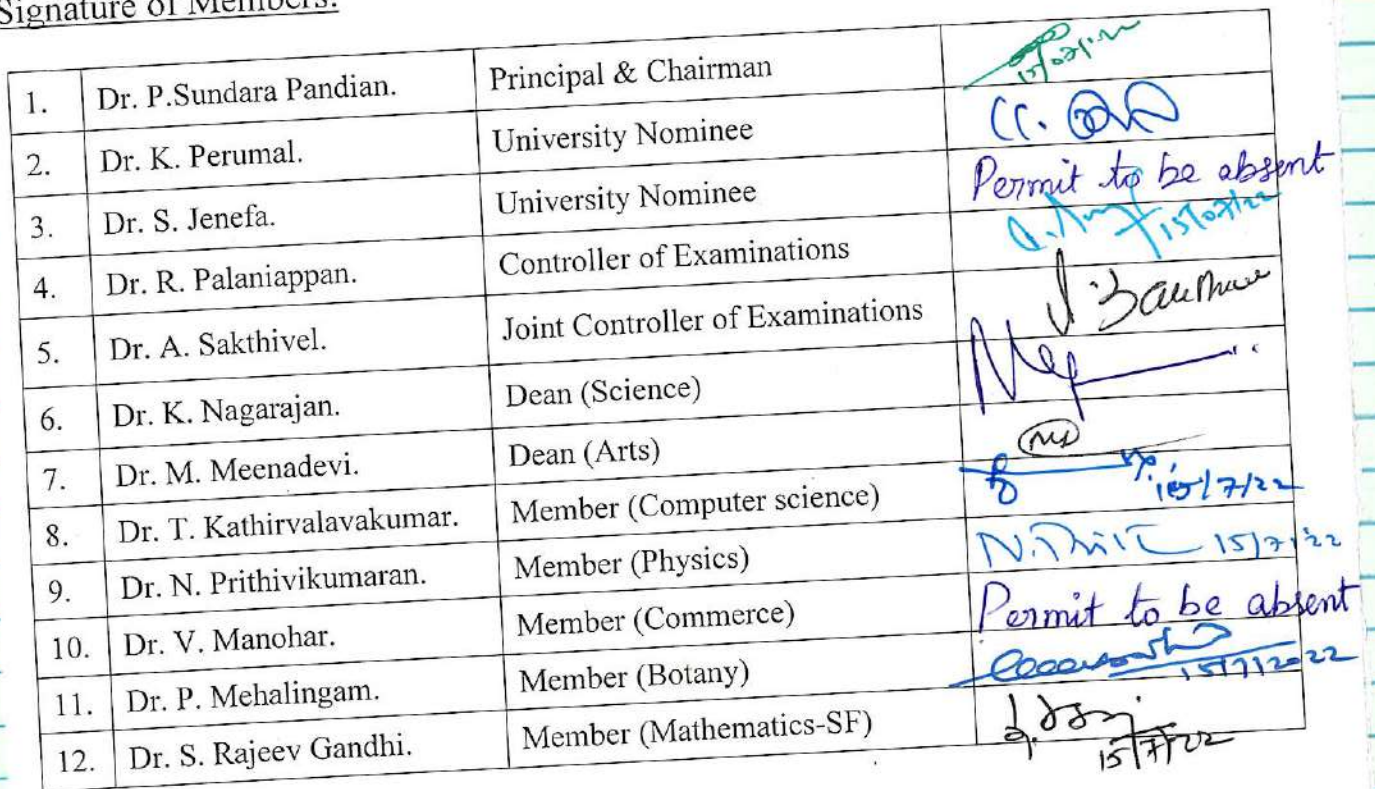 Signature of Members:
1. Dr. P.Sundara Pandian. Principal & Chairman 15/07/22
2. Dr. K. Perumal. University Nominee
3. Dr. S. Jenefa. University Nominee Permit to be absent
4. Dr. R. Palaniappan. Controller of Examinations 15/07/22
5. Dr. A. Sakthivel. Joint Controller of Examinations
6. Dr. K. Nagarajan. Dean (Science)
7. Dr. M. Meenadevi. Dean (Arts)
8. Dr. T. Kathirvalavakumar. Member (Computer science) 15/7/22
9. Dr. N. Prithivikumaran. Member (Physics) 15/7/22
10. Dr. V. Manohar. Member (Commerce) Permit to be absent
11. Dr. P. Mehalingam. Member (Botany) 15/7/2022
12. Dr. S. Rajeev Gandhi. Member (Mathematics-SF) 15/7/22